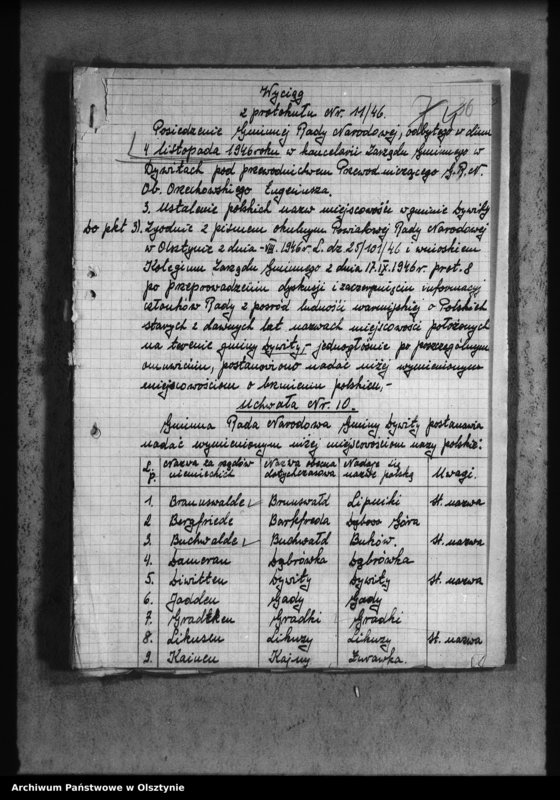 Wyciąg
z protokułu Nr. 11/46.
Posiedzenie Gminnej Rady Narodowej, odbytego w dniu
4 listopada 1946 roku w kancelarii Zarządu Gminnego w
Dywitach pod przewodnictwem Przewodniczącego G.R.N.
Ob. Orzechowskiego Eugeniusza.
3. Ustalenie polskich nazw miejscowości w gminie Dywity
Do pkt 3). Zgodnie z pismem okulnym Powiatowej Rady Narodowej
w Olsztynie z dnia -VIII. 1946 r. L. dz. 25/101/46 i wnioskiem
Kolegium Zarządu Gminnego z dnia 17.IX.1946 r. prot. 8
po przeprowadzeniu dyskusji i zaczerpnięciu informacji
członków Rady z pośród ludności warmijskiej o Polskich
starych z dawnych lat nazwach miejscowości położonych
na terenie gminy Dywity,- jednogłośnie po szczegółnym
omówieniu, postanowiono nadać niżej wymienionym
miejscowościom o brzmieniu polskiem,-
Uchwała Nr. 10.
Gminna Rada Narodowa Gminy Dywity postanawia
nadać wymienionym niżej miejscowościom nazwy polskie:
L.p. Nazwa za rządów niemieckich Nazwa obecna dotychczasowa Nadaje się nazwę polską Uwagi.
1. Braunswalde Brunswałd Lipniki st. nazwa
2 Bergfriede Barkfreda Dębowa Góra
3. Buchwalde Buchwałd Buków. st. nazwa
4. Damerau Dąbrówka Dąbrówka
5. Diwitten Dywity Dywity st. nazwa
6. Jadden Gady Gady
7. Gradtken Gradki Gradki
8. Likusen Likuzy Likuzy st. nazwa
9. Kainen Kajny Żurawka.
Archiwum Państwowe w Olsztynie